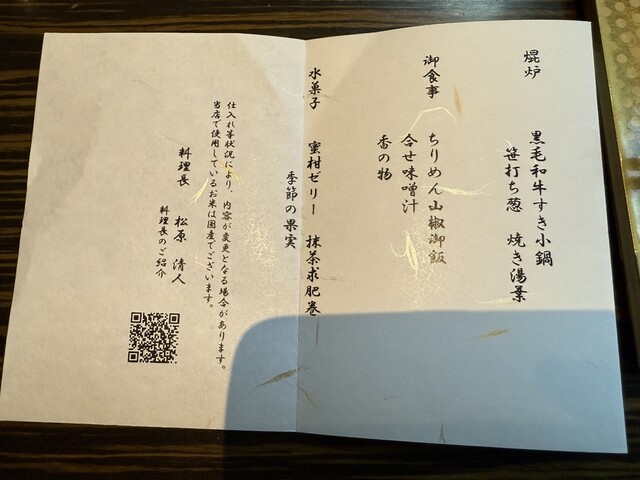 焜炉
黒毛和牛すき小鍋
笹打ち葱　焼き湯葉
御食事
ちりめん山椒御飯
合せ味噌汁
香の物
水菓子　蜜柑ゼリー　抹茶求肥巻
季節の果実
仕入れ等状況により、内容が変更となる場合があります。
当店で使用しているお米は国産でございます。
料理長　松原　清人
料理長のご紹介